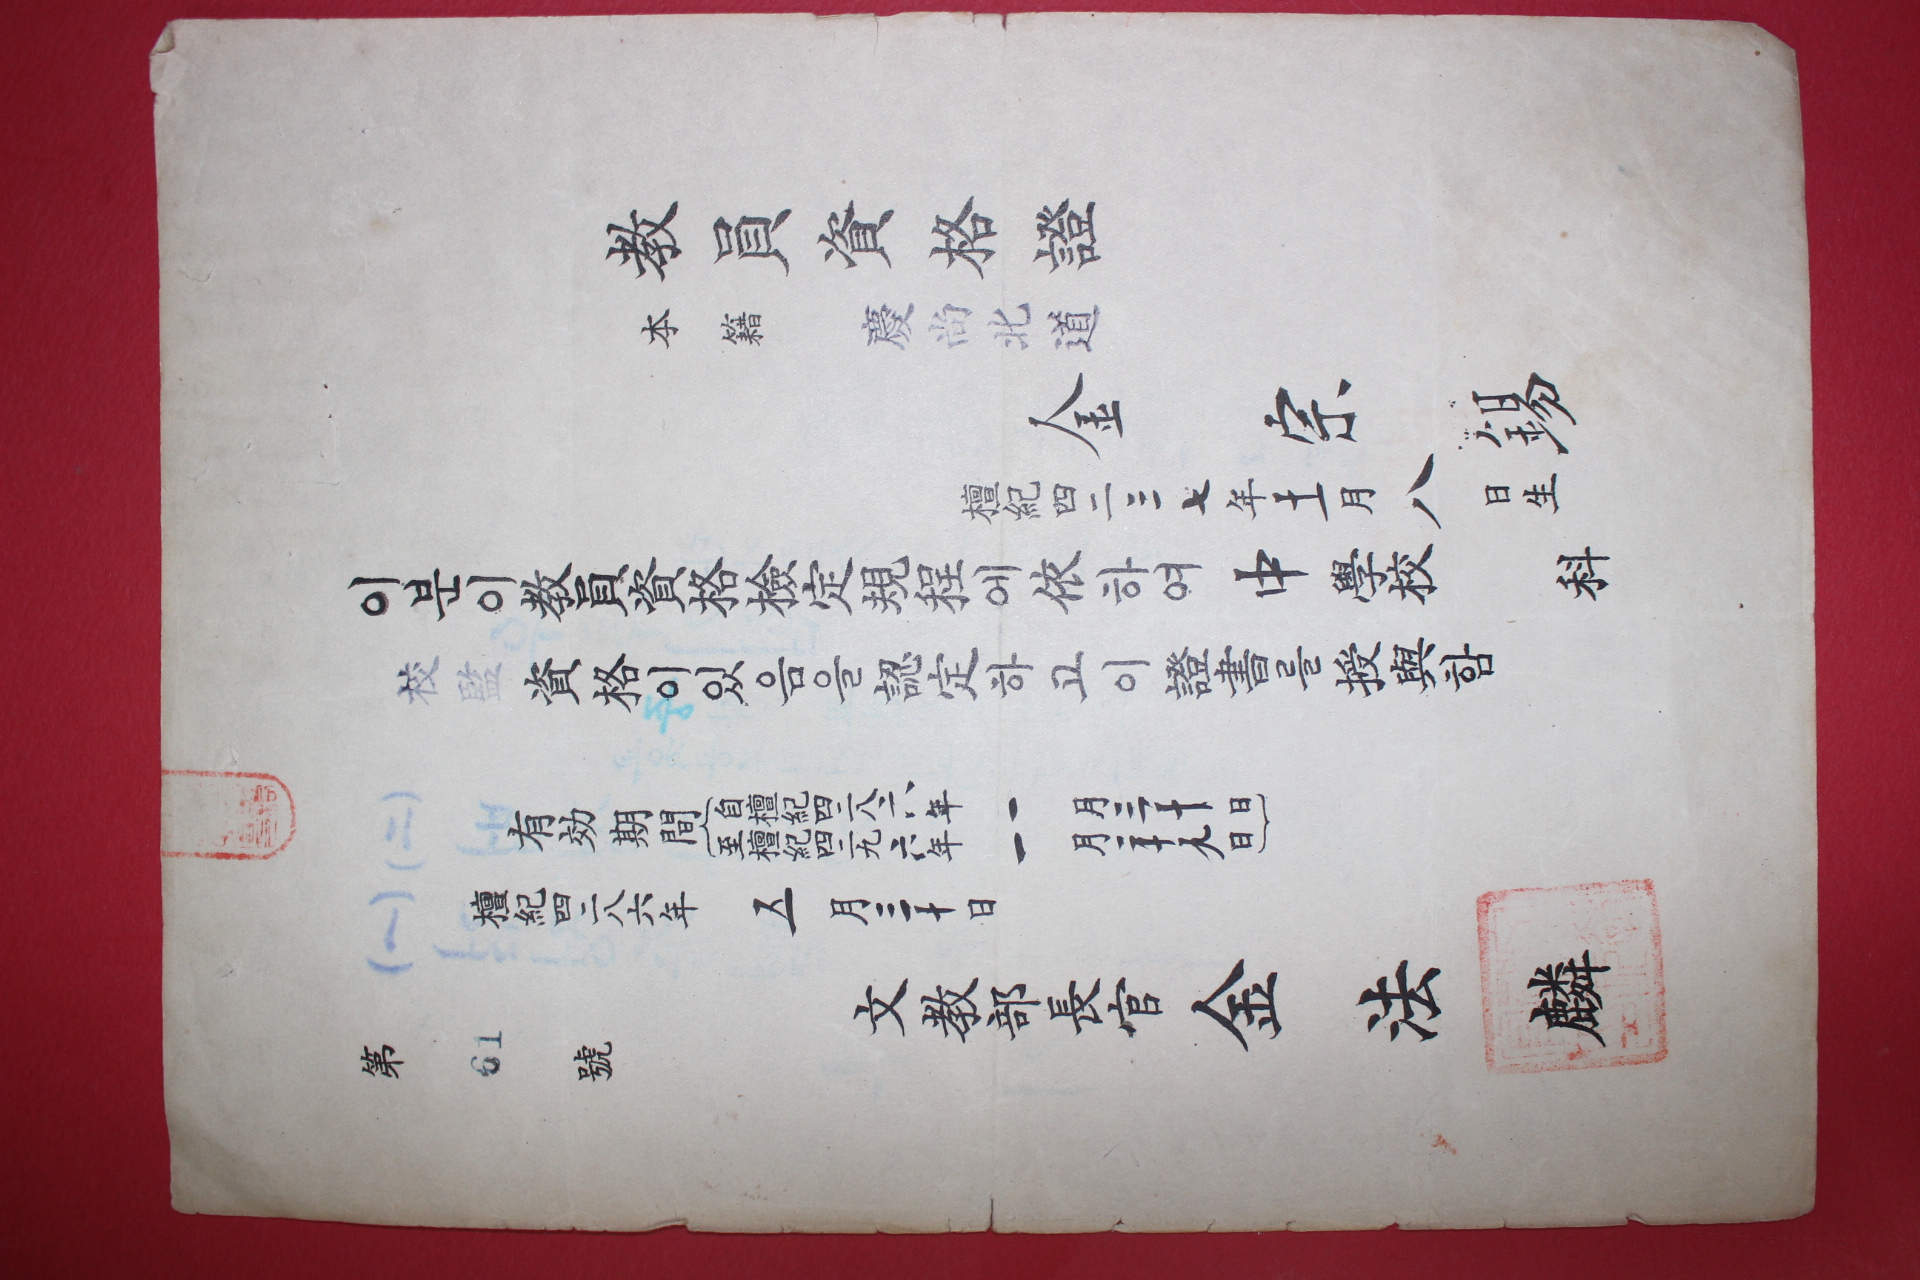 教員資格證
本籍 慶尙北道
金宗錫
檀紀四二三七年十一月八日生
이분이教員資格檢定規程에依하여中學校 科
校監資格이있음을認定하고이證書를授與함
有効期間
自檀紀四二八六年一月三十日
至檀紀四二九六年一月二十九日
檀紀四二八六年五月三十日
文敎部長官金法麟
第61號
(一)(二)